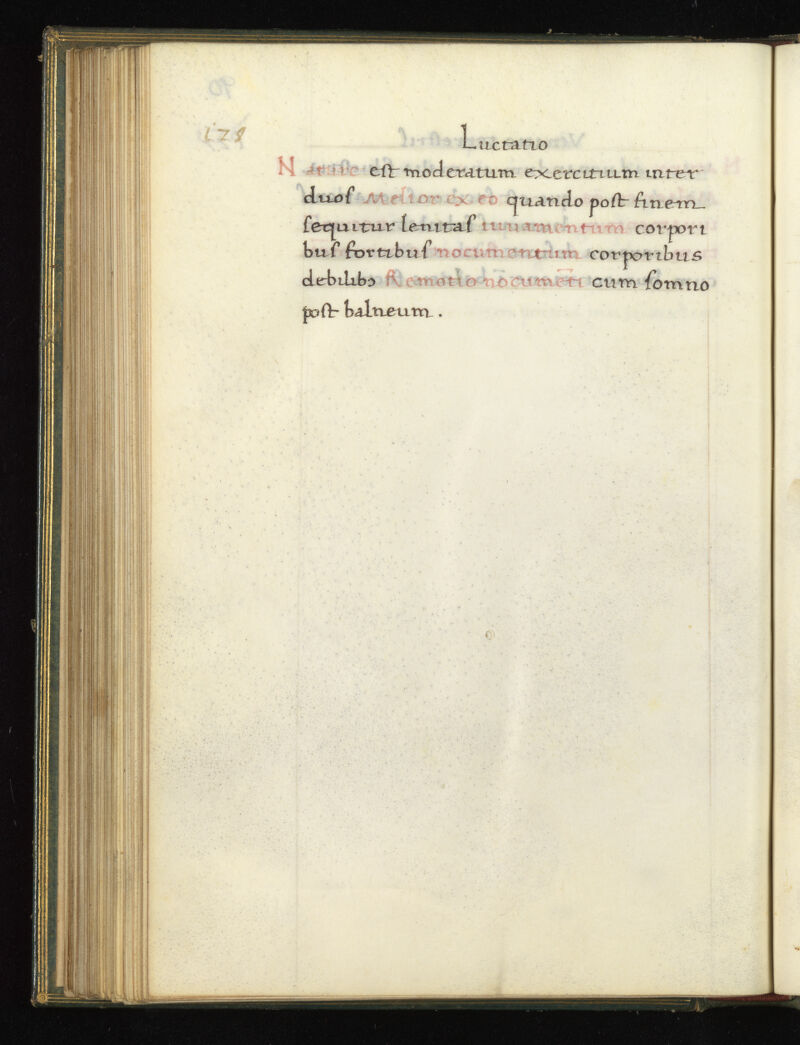 178
Luctatio
Nature eſt moderatum exercitium inter
duoſ Melior ex eo quando poſt finem
ſequitur lenitaſ iuuamentum corpori
buſ fortibuſ nocumentum corporibus
debilibꝫ Remotio nocumēti cum ſomno
poſt balneum .